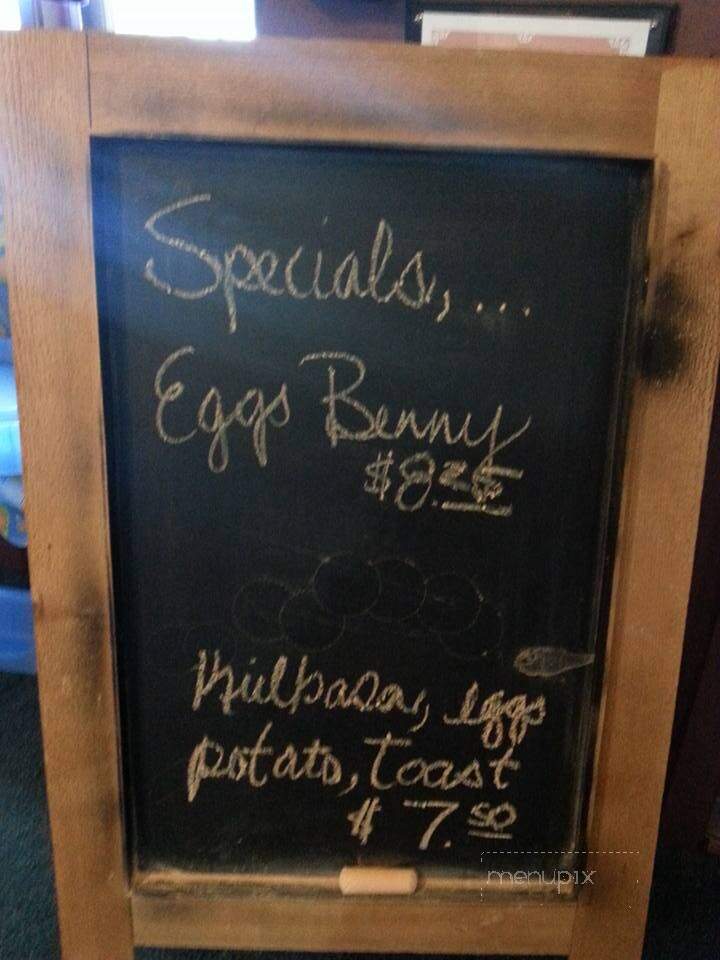 Specials, ...
Eggs Benny
Kielbasa, eggs
potato, Toast
$ 7.50
menupix